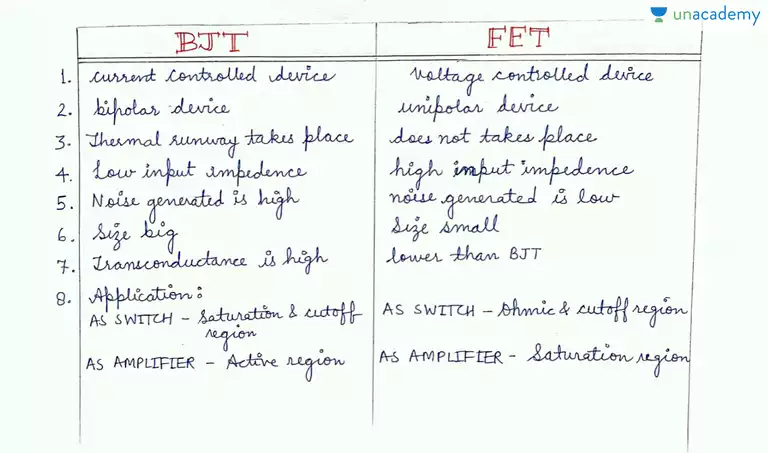 unacademy
BJT FET
1. current controlled device voltage controlled device
2. bipolar device unipolar device
3. Thermal runway takes place does not takes place
4. Low input impedence high input impedence
5. Noise generated is high noise generated is low
6. Size big Size small
7. Transconductance is high lower than BJT
8. Application:
AS SWITCH - Saturation & cutoff region AS SWITCH - Ohmic & cutoff region
AS AMPLIFIER - Active region AS AMPLIFIER - Saturation region